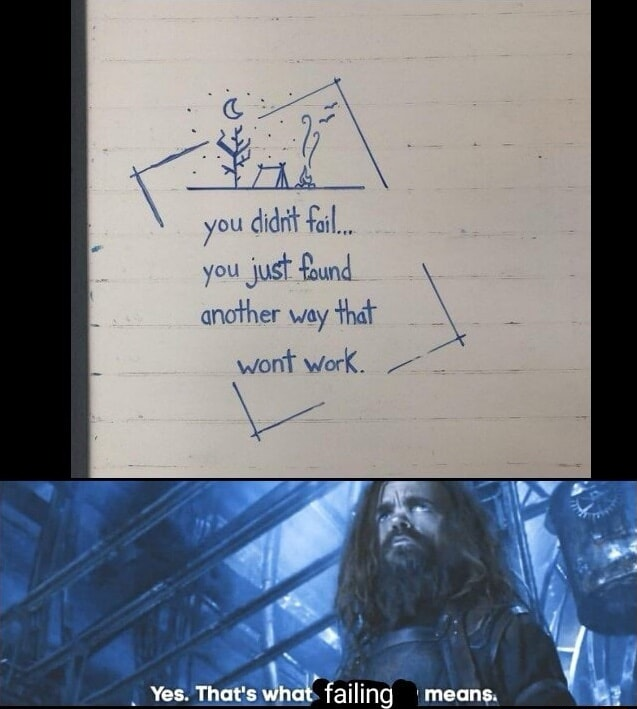 you didn't fail...
you just found
another way that
wont work.
Yes. That's what failing means.